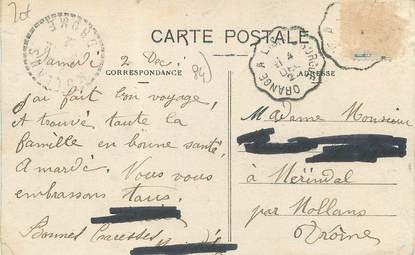 20x
CARTE POSTALE
CORRESPONDANCE
ADRESSE
84)
ORANGE A
DROME
Samedi 2 Dec.
J'ai fait bon voyage,
et trouvé toute la
famille en bonne santé,
A mardi. Vous vous
embrassons tous.
Bonnes Caresses
Madame Monsieur
à Mérindol
par Mollans
Drôme